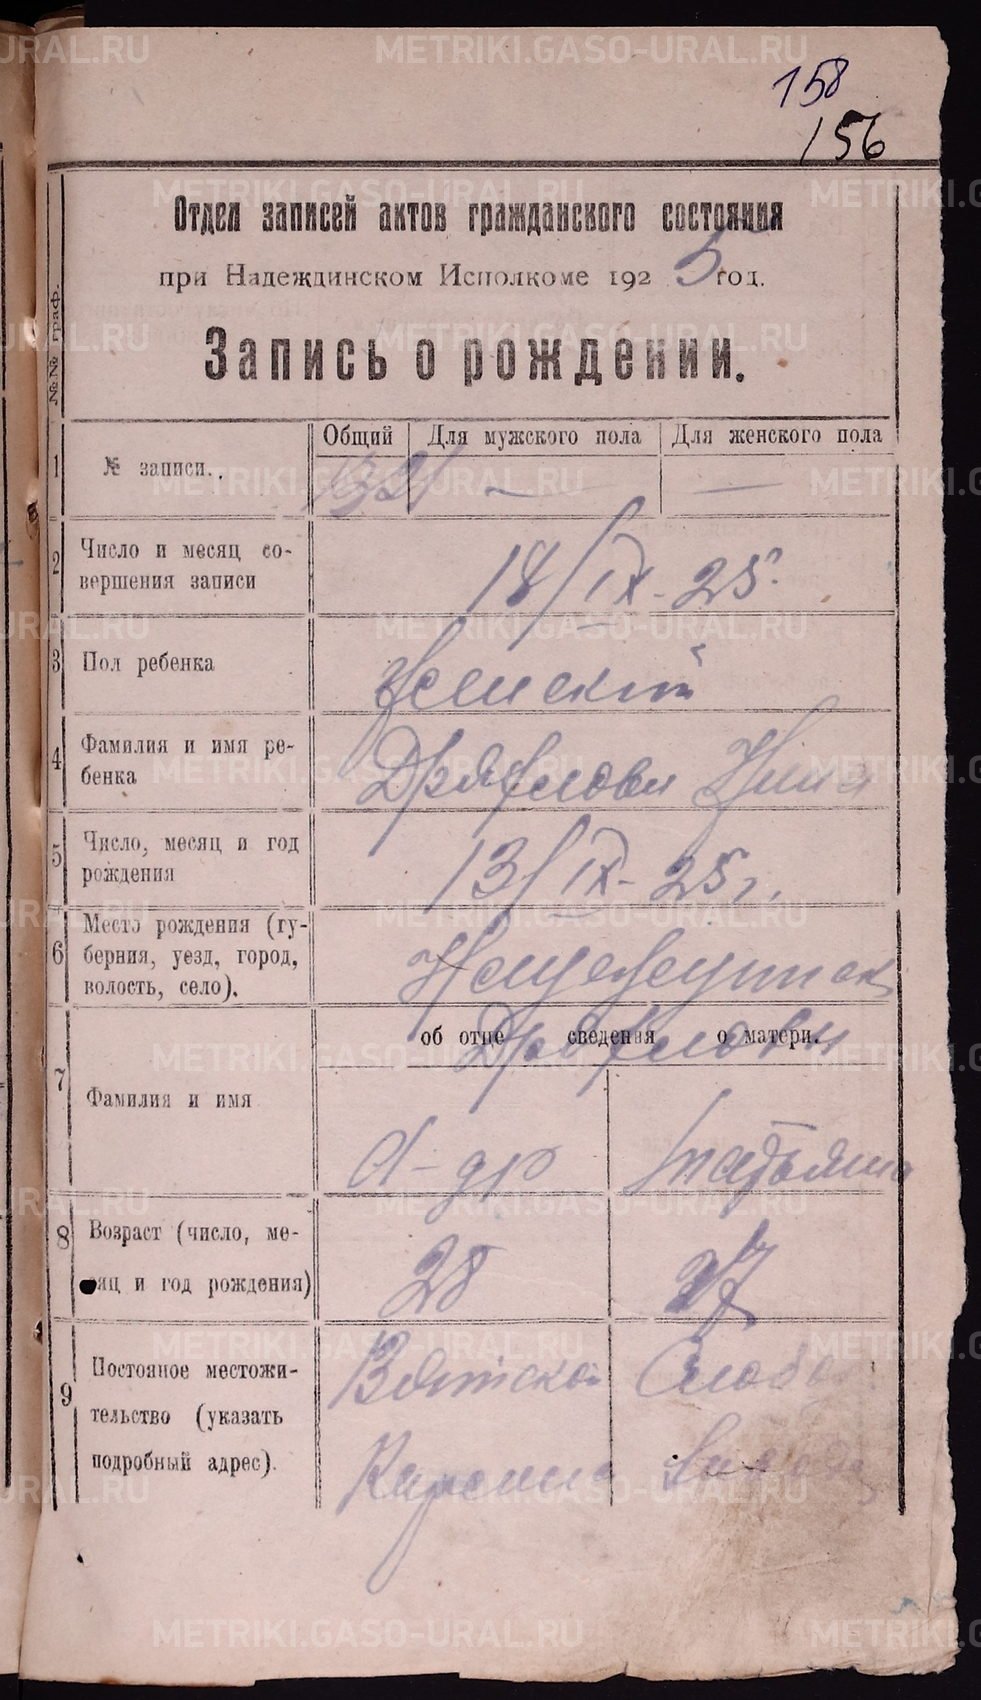 158
156
Отдел записей актов гражданского состояния
при Надеждинском Исполкоме 1925 год.
№№ граф.
Запись о рождении.
Общий Для мужского пола Для женского пола
1 № записи. 1321 — —
2 Число и месяц со-
вершения записи
18/IX-25.
3 Пол ребенка Женский
4 Фамилия и имя ре-
бенка
Нина
5 Число, месяц и год
рождения
13/IX-25 г.
6 Место рождения (гу-
берния, уезд, город,
волость, село).
об отце сведения о матери.
7 Фамилия и имя
А-др Татьяна
8 Возраст (число, ме-
яц и год рождения)
28 27
9 Постоянное местожи-
тельство (указать
подробный адрес).
Вятской Слобо
METRIKI.GASO-URAL.RU